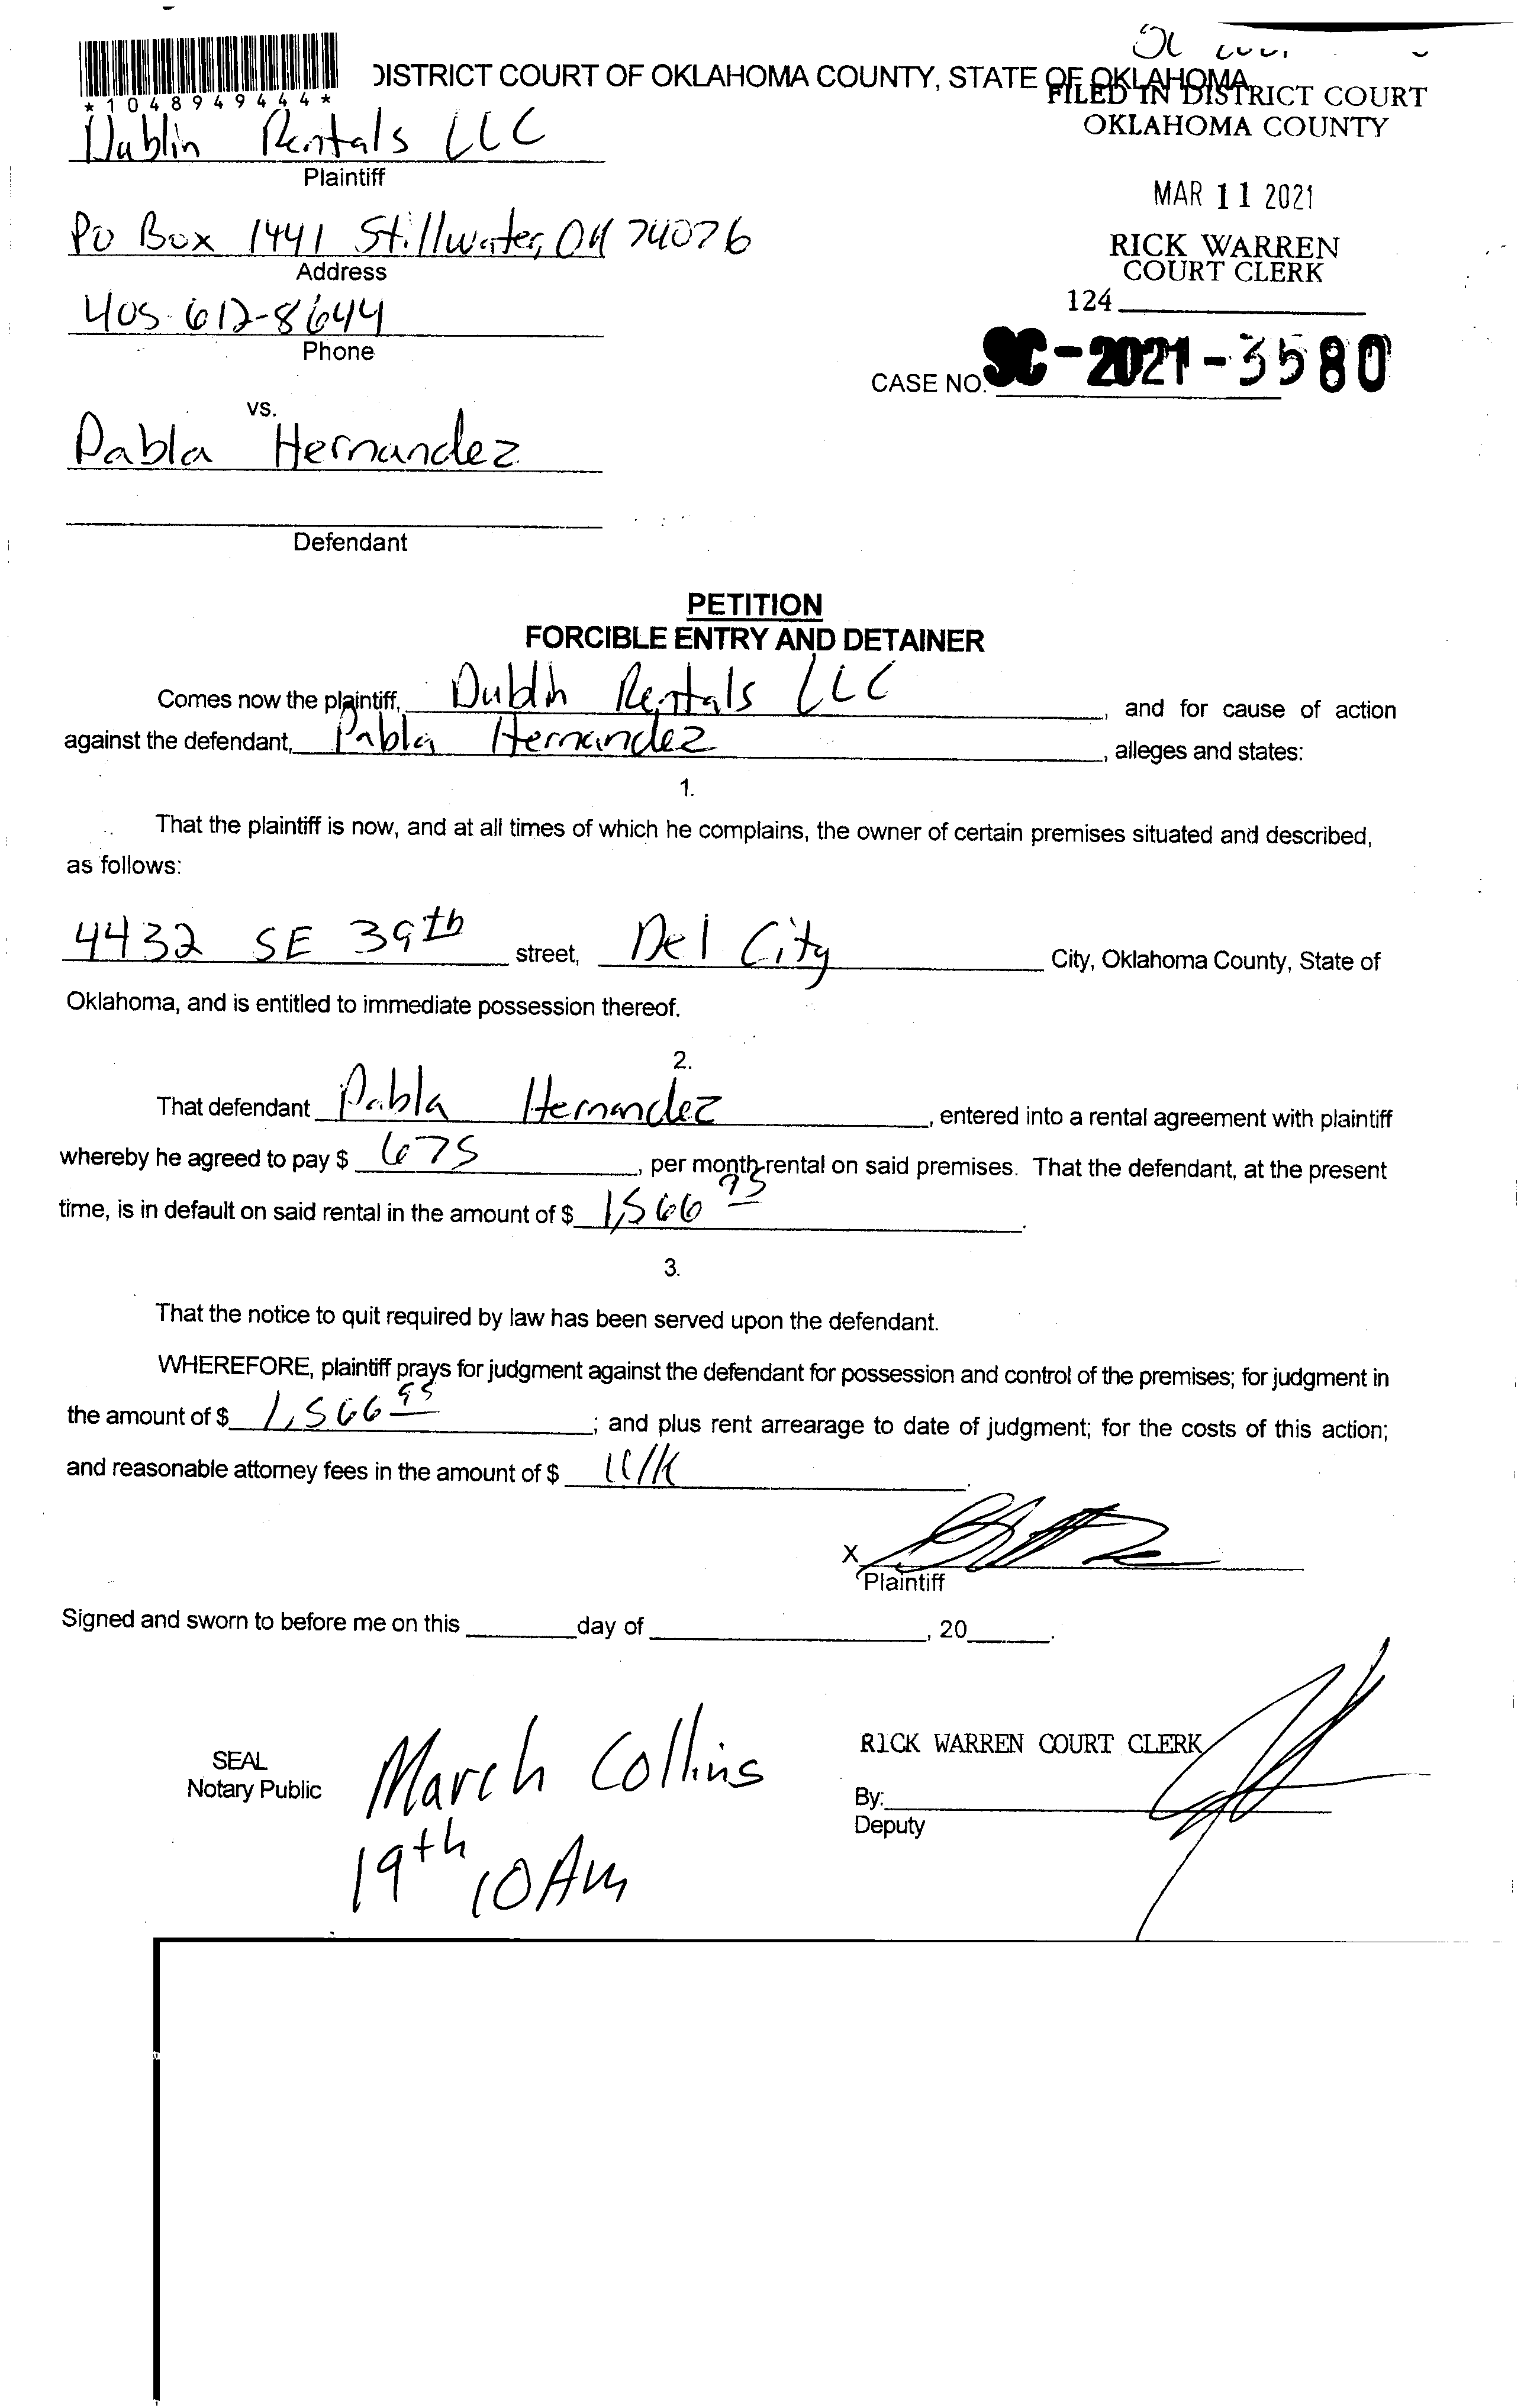 *1048949444*
DISTRICT COURT OF OKLAHOMA COUNTY, STATE OF OKLAHOMA
FILED IN DISTRICT COURT
OKLAHOMA COUNTY
Dublin Rentals LLC
Plaintiff
MAR 11 2021
PO Box 1441 Stillwater, OK 74076
Address
RICK WARREN
COURT CLERK
405-612-8644
Phone
124
CASE NO. SC-2021-3580
vs.
Pabla Hernandez
Defendant
PETITION
FORCIBLE ENTRY AND DETAINER
Comes now the plaintiff, Dublin Rentals LLC, and for cause of action
against the defendant, Pabla Hernandez, alleges and states:
1.
That the plaintiff is now, and at all times of which he complains, the owner of certain premises situated and described,
as follows:
4432 SE 39th street, Del City City, Oklahoma County, State of
Oklahoma, and is entitled to immediate possession thereof.
2.
That defendant Pabla Hernandez, entered into a rental agreement with plaintiff
whereby he agreed to pay $ 675, per month rental on said premises. That the defendant, at the present
time, is in default on said rental in the amount of $ 1,566 95.
3.
That the notice to quit required by law has been served upon the defendant.
WHEREFORE, plaintiff prays for judgment against the defendant for possession and control of the premises; for judgment in
the amount of $ 1,566 95; and plus rent arrearage to date of judgment; for the costs of this action;
and reasonable attorney fees in the amount of $
X
Plaintiff
Signed and sworn to before me on this day of , 20 .
SEAL
Notary Public
March Collins
19th 10 AM
RICK WARREN COURT CLERK
By:
Deputy